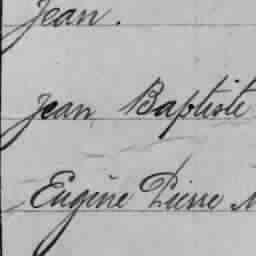 Jean.
Jean Baptiste
Eugène Pierre